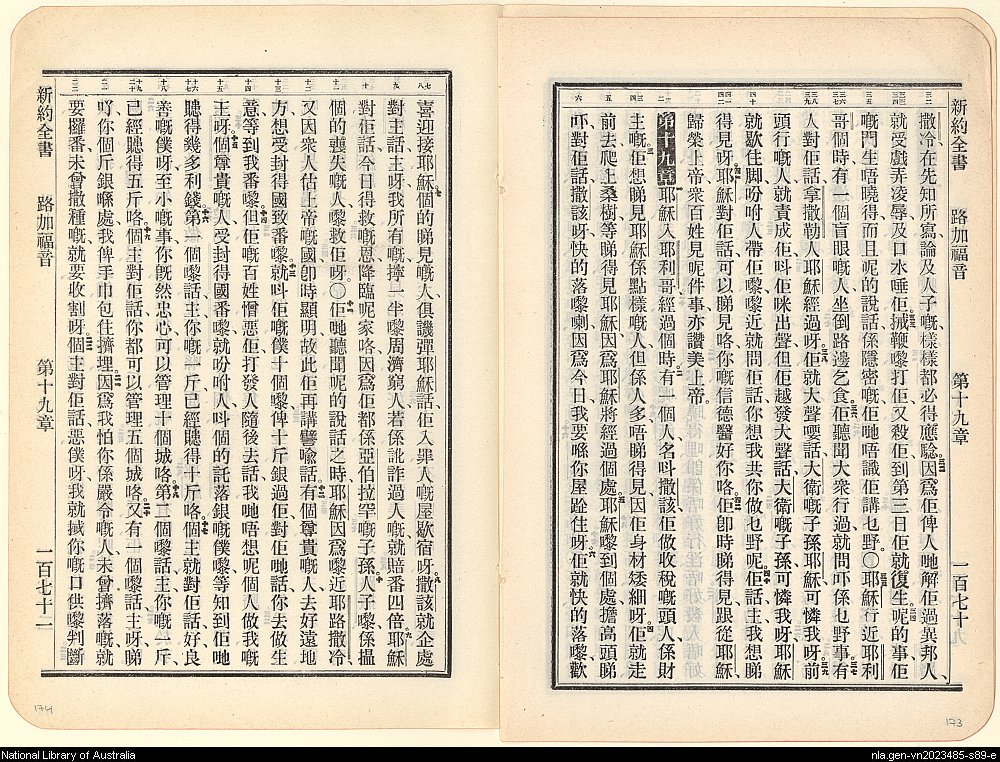 新約全書 路加福音 第十九章 一百七十
撒冷、在先知所寫論及人子嘅、樣樣都必得應驗。因爲佢俾人哋解佢過異邦人、
就受戲弄凌辱及口水唾佢。㨢鞭嚟打佢、又殺佢、到第三日佢就復生。呢的事佢
嘅門生唔曉得、而且呢的說話、係隱密嘅、佢哋唔識佢講乜野。〇耶穌行近耶利
哥個時、有一個盲眼嘅人、坐倒路邊乞食。佢聽聞大衆行過、就問吓係乜野事。有
人對佢話、拿撒勒人耶穌經過呀。佢就大聲嗌話、大衛嘅子孫耶穌、可憐我呀。前
頭行嘅人、就責成佢、呌佢咪出聲、但佢越發大聲話、大衛嘅子孫、可憐我呀。耶穌
就歇住脚、吩咐人帶佢嚟、嚟近就問佢話、你想我共你做乜野呢、佢話、主、我想睇
得見呀。耶穌對佢話、可以睇見咯、你嘅信德醫好你咯。佢卽時睇得見、跟從耶穌、
歸榮上帝、衆百姓見呢件事、亦讚美上帝。
第十九章 耶穌入耶利哥經過個時、有一個人名呌撒該、佢做收稅嘅頭人、係財
主嘅。佢想睇見耶穌係點樣嘅人、但係人多唔睇得見、因佢身材矮細呀。佢就走
前去、爬上桑樹、等睇得見耶穌、因爲耶穌將經過個處。耶穌嚟到個處、擔高頭睇
吓、對佢話、撒該呀、快的落嚟喇、因爲今日我要喺你屋跧住呀。佢就快的落嚟、歡
喜迎接耶穌。個的睇見嘅人、俱譏彈耶穌話、佢入罪人嘅屋歇宿呀。撒該就企處
對主話、主呀、我所有嘅、擰一半嚟周濟窮人、若係訛詐過人嘅、就賠番四倍。耶穌
對佢話、今日得救嘅恩降臨呢家咯、因爲佢都係亞伯拉罕嘅子孫。人子嚟、係揾
個的喪失嘅人、嚟救佢呀。〇佢哋聽聞呢的說話之時、耶穌因爲嚟近耶路撒冷、
又因衆人估上帝嘅國卽時顯明、故此佢再講譬喩話、有個尊貴嘅人、去好遠地
方、想受封得國致番嚟。就呌佢嘅僕十個嚟、俾十斤銀過佢、對佢哋話、你去做生
意、等到我番嚟。但佢嘅百姓憎惡佢、打發人隨後去話、我哋唔想呢個人做我嘅
王呀。個尊貴嘅人、受封得國番嚟、就吩咐人呌個的託落銀嘅僕嚟、等知到佢哋
賺得幾多利錢。第一個嚟話、主、你嘅一斤、已經賺得十斤咯。個主就對佢話、好、良
善嘅僕呀、至小嘅事你旣然忠心、可以管理十個城咯。第二個嚟話、主、你嘅一斤、
已經賺得五斤咯。個主對佢話、你都可以管理五個城咯。又有一個嚟話、主呀、睇
吓你個斤銀喺處、我俾手巾包住擠埋。因爲我怕你、係嚴令嘅人、未曾擠落嘅、就
要攞番、未曾撒種嘅、就要收割呀。個主對佢話、惡僕呀、我就㨢你嘅口供嚟判斷
新約全書 路加福音 第十九章 一百七十二
174
173
National Library of Australia
nla.gen-vn2023485-s89-e